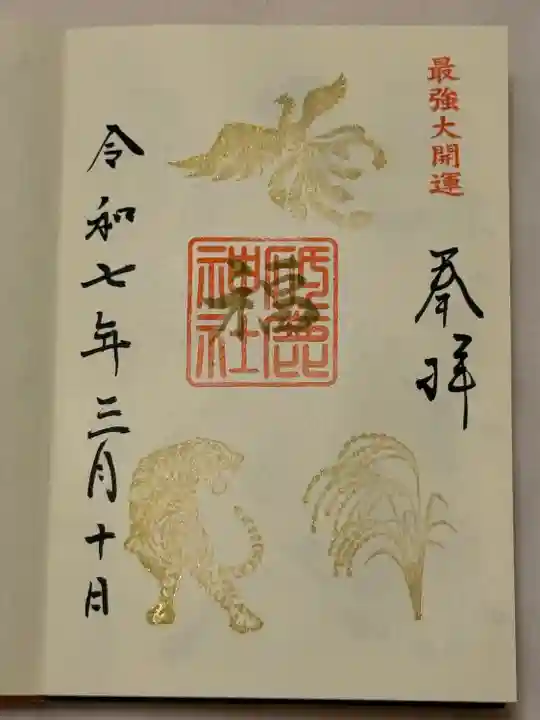 最強大開運
奉拝
福
鹿
神社
令和七年三月十日